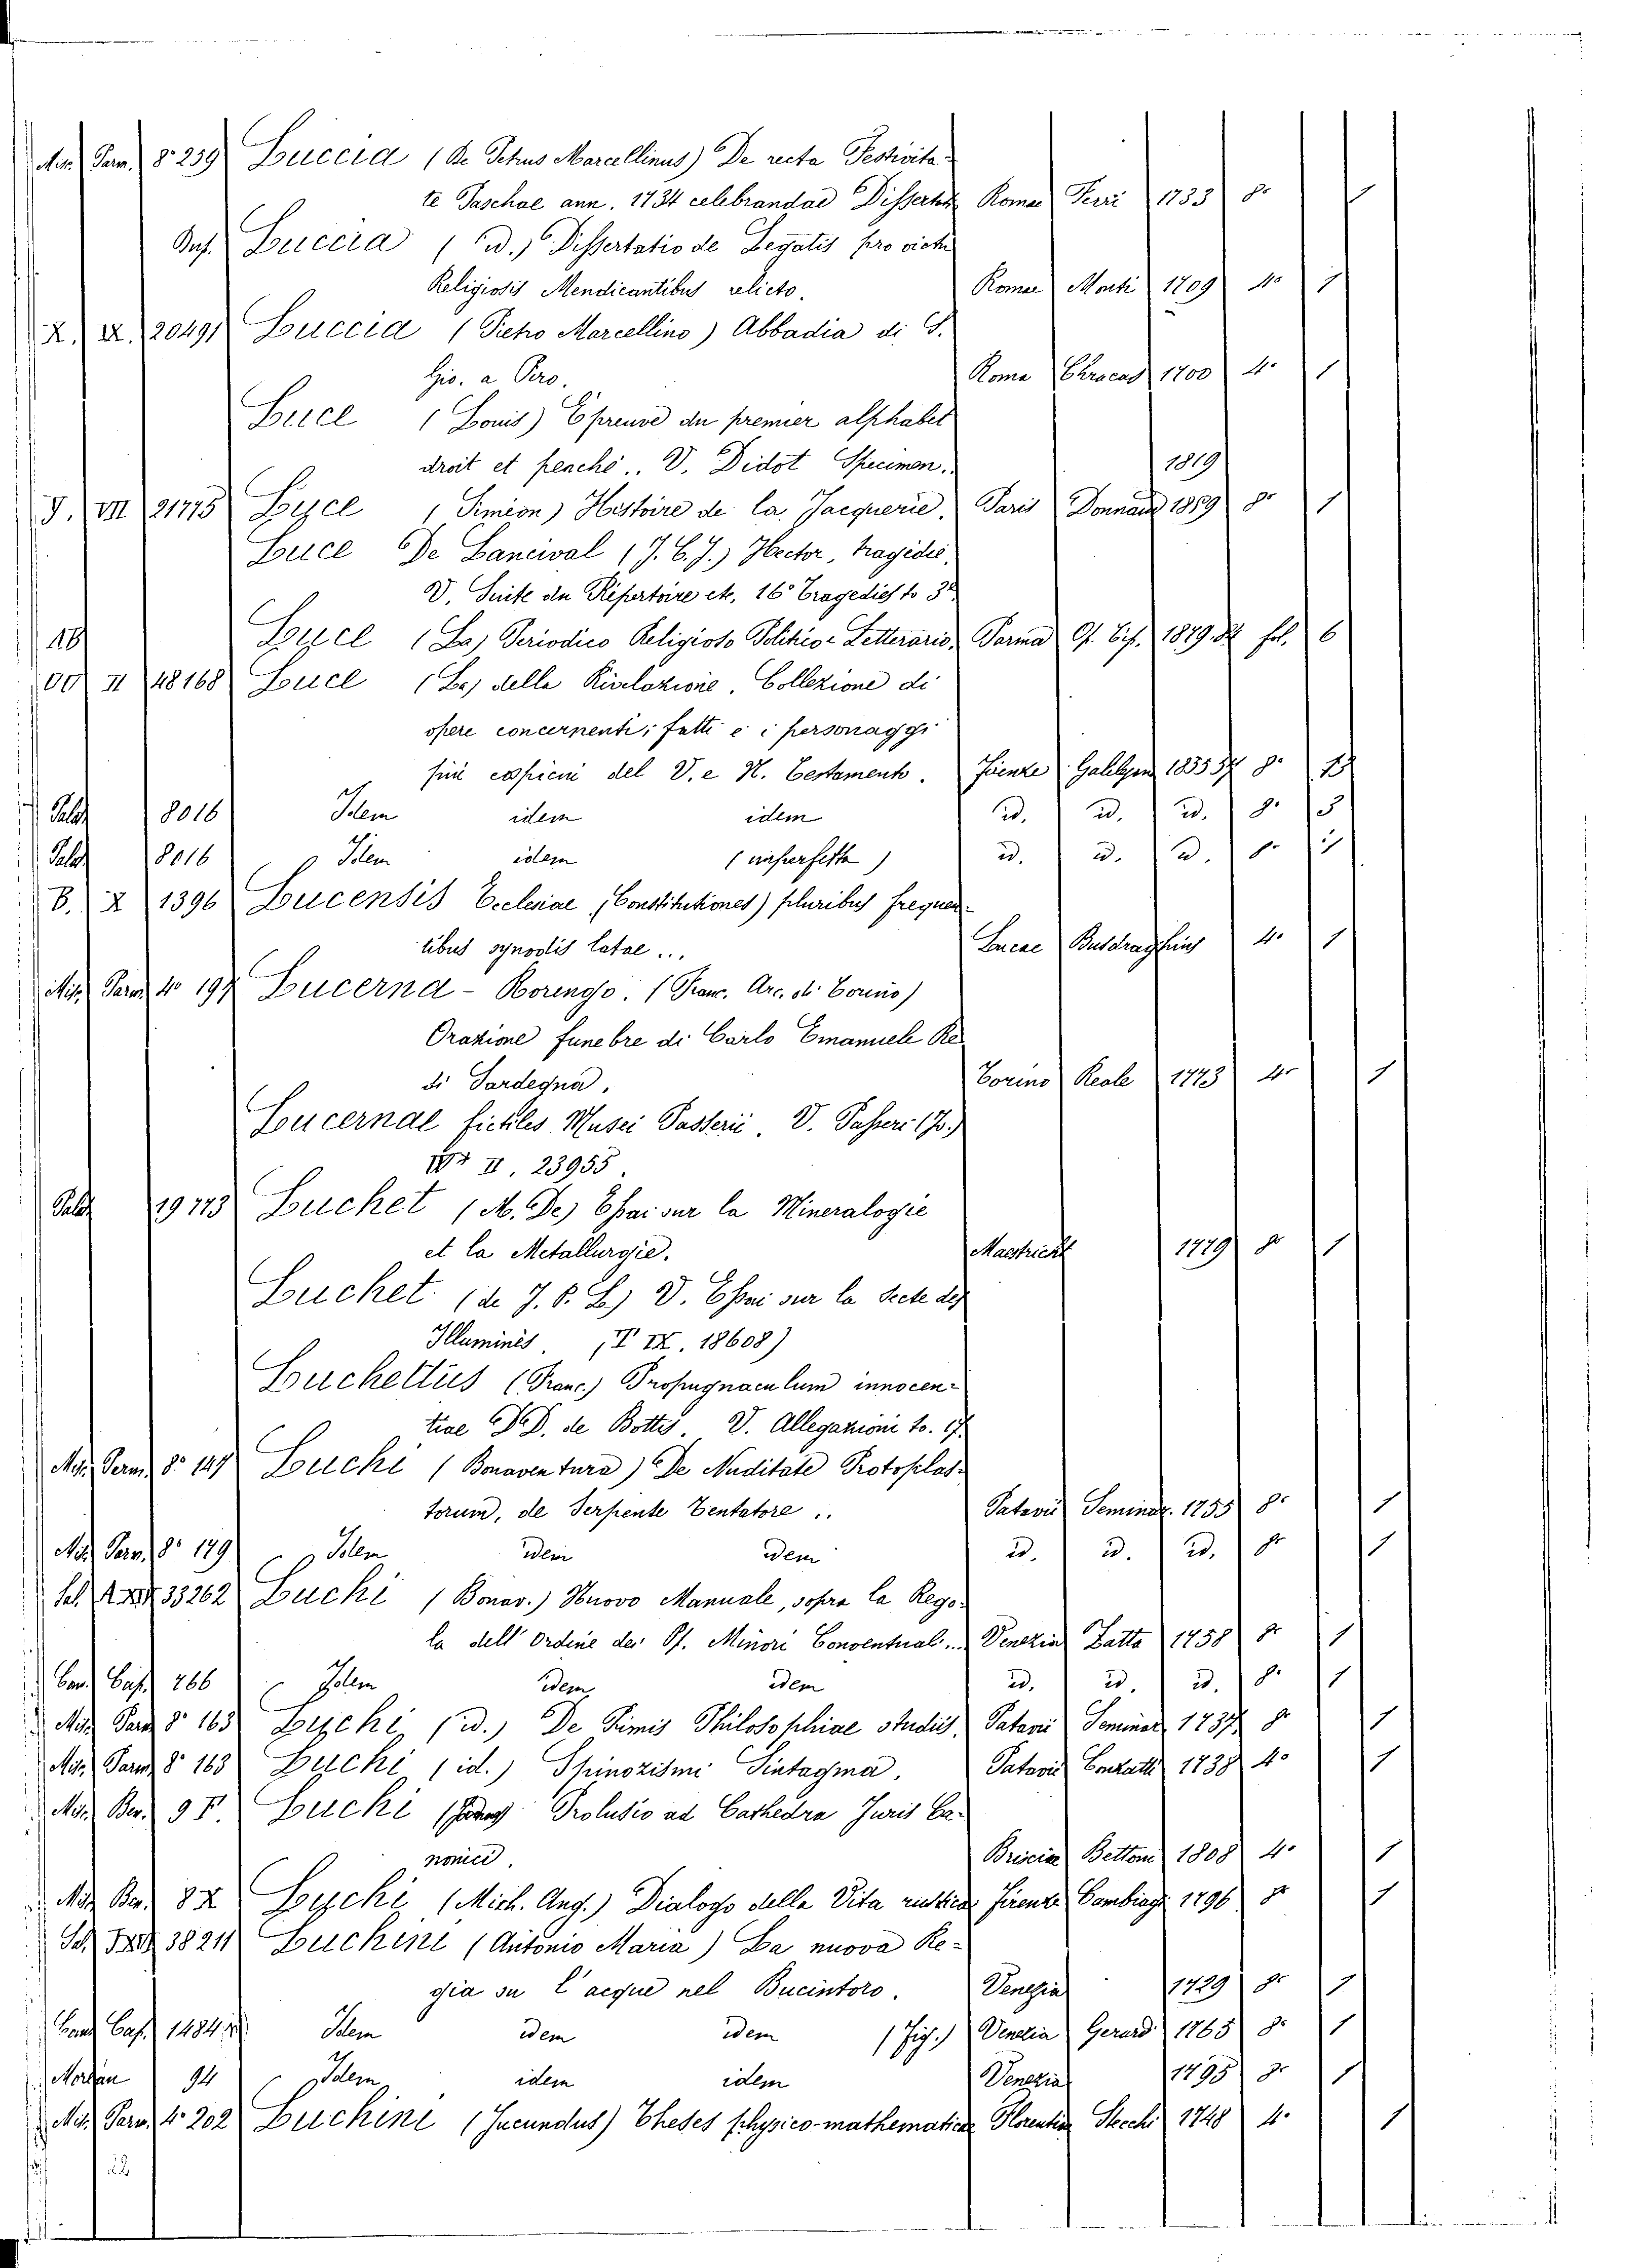 Mis. Parm. 8° 239 Luccia (De Petrus Marcellinus) De recta Festivita-
te Paschae ann. 1734 celebrandae Dissertat. Romae Ferri 1733 8°
Luccia (id.) Dissertatio de Legatis pro victu
Religiosis Mendicantibus relicto. Romae Monti 1709 4° 1
Z. IX. 20491 Luccia (Pietro Marcellino) Abbadia di S.
Gio. a Piro. Roma Chracas 1700 4° 1
Luce (Louis) Epreuve du premier alphabet
droit et penché.. V. Didot Specimen. 1819
J. VII 21775 Luce (Siméon) Histoire de la Jacquerie. Paris Donnaud 1859 8° 1
Luce De Lancival (J. C. J.) Hector, tragédie,
V. Suite du Répertoire etc. 16° Tragedies to 3°
18 Luce (La) Periodico Religioso Politico-Letterario, Parma 1879.82 fol. 6
OO II 48168 Luce (La) della Rivelazione. Collezione di
opere concernenti i fatti e i personaggi
più cospicui del V. e N. Testamento. Firenze 1835 37 8°
Palat 8016 Idem idem idem id. id. id. 8° 3
Palat 8016 Idem idem (imperfetta) id. id. id. 8°
B. X 1396 Lucensis Ecclesiae (Constitutiones) pluribus frequen-
tibus synodis latae... Lucae Busdraghius 4° 1
Mis. Parm. 4° 197 Lucerna-Rorengo. (Franc. Arc. di Torino)
Orazione funebre di Carlo Emanuele Re
di Sardegna. Torino Reale 1773 4° 1
Lucernae fictiles Musei Passerii. V. Passeri (Jo.)
II. 23955.
Palat 19773 Luchet (M. De) Essai sur la Mineralogie
et la Metallurgie. Mastricht 1779 8° 1
Luchet (de J. P. L.) V. Essai sur la secte des
Illuminés. (T IX. 18608)
Luchettus (Franc.) Propugnaculum innocen-
tiae D. D. de Bottis. V. Allegazioni to. 17.
Mis. Parm. 8° 147 Luchi (Bonaventura) De Nuditate Protoplas-
torum, de Serpente Tentatore.. Patavii Seminar. 1755 8° 1
Mis. Parm. 8° 179 Idem idem idem id. id. id. 8° 1
33262 Luchi (Bonav.) Nuovo Manuale, sopra la Rego-
la dell'Ordine dei Ff. Minori Conventuali... Venezia Zatta 1758 8° 1
Con. Caf. 766 Idem idem idem id. id. id. 8° 1
Mis. Parm. 8° 163 Luchi (id.) De Primis Philosophiae studiis. Patavii Seminar. 1737. 8° 1
Mis. Parm. 8° 163 Luchi (id.) Spinozismi Sintagma. Patavii Conzatti 1738 4° 1
Mis. Ber. 9 F. Luchi Prolusio ad Cathedra Juris Ca-
nonici. Brixiae Bettoni 1808 4° 1
Mis. Ber. 8 X Luchi (Mich. Ang.) Dialogo della Vita rustica Firenze Cambiagi 1796 8° 1
38211 Luchini (Antonio Maria) La nuova Re-
gia su l'acque nel Bucintoro. Venezia 1729 8° 1
Cond. Caf. 1484 Idem idem idem (Fig.) Venezia Gerard 1765 8° 1
94 Idem idem idem Venezia 1795 8° 1
Mis. Parm. 4° 202 Luchini (Jucundus) Theses physico-mathematicae Florentiae Stecchi 1748 4° 1